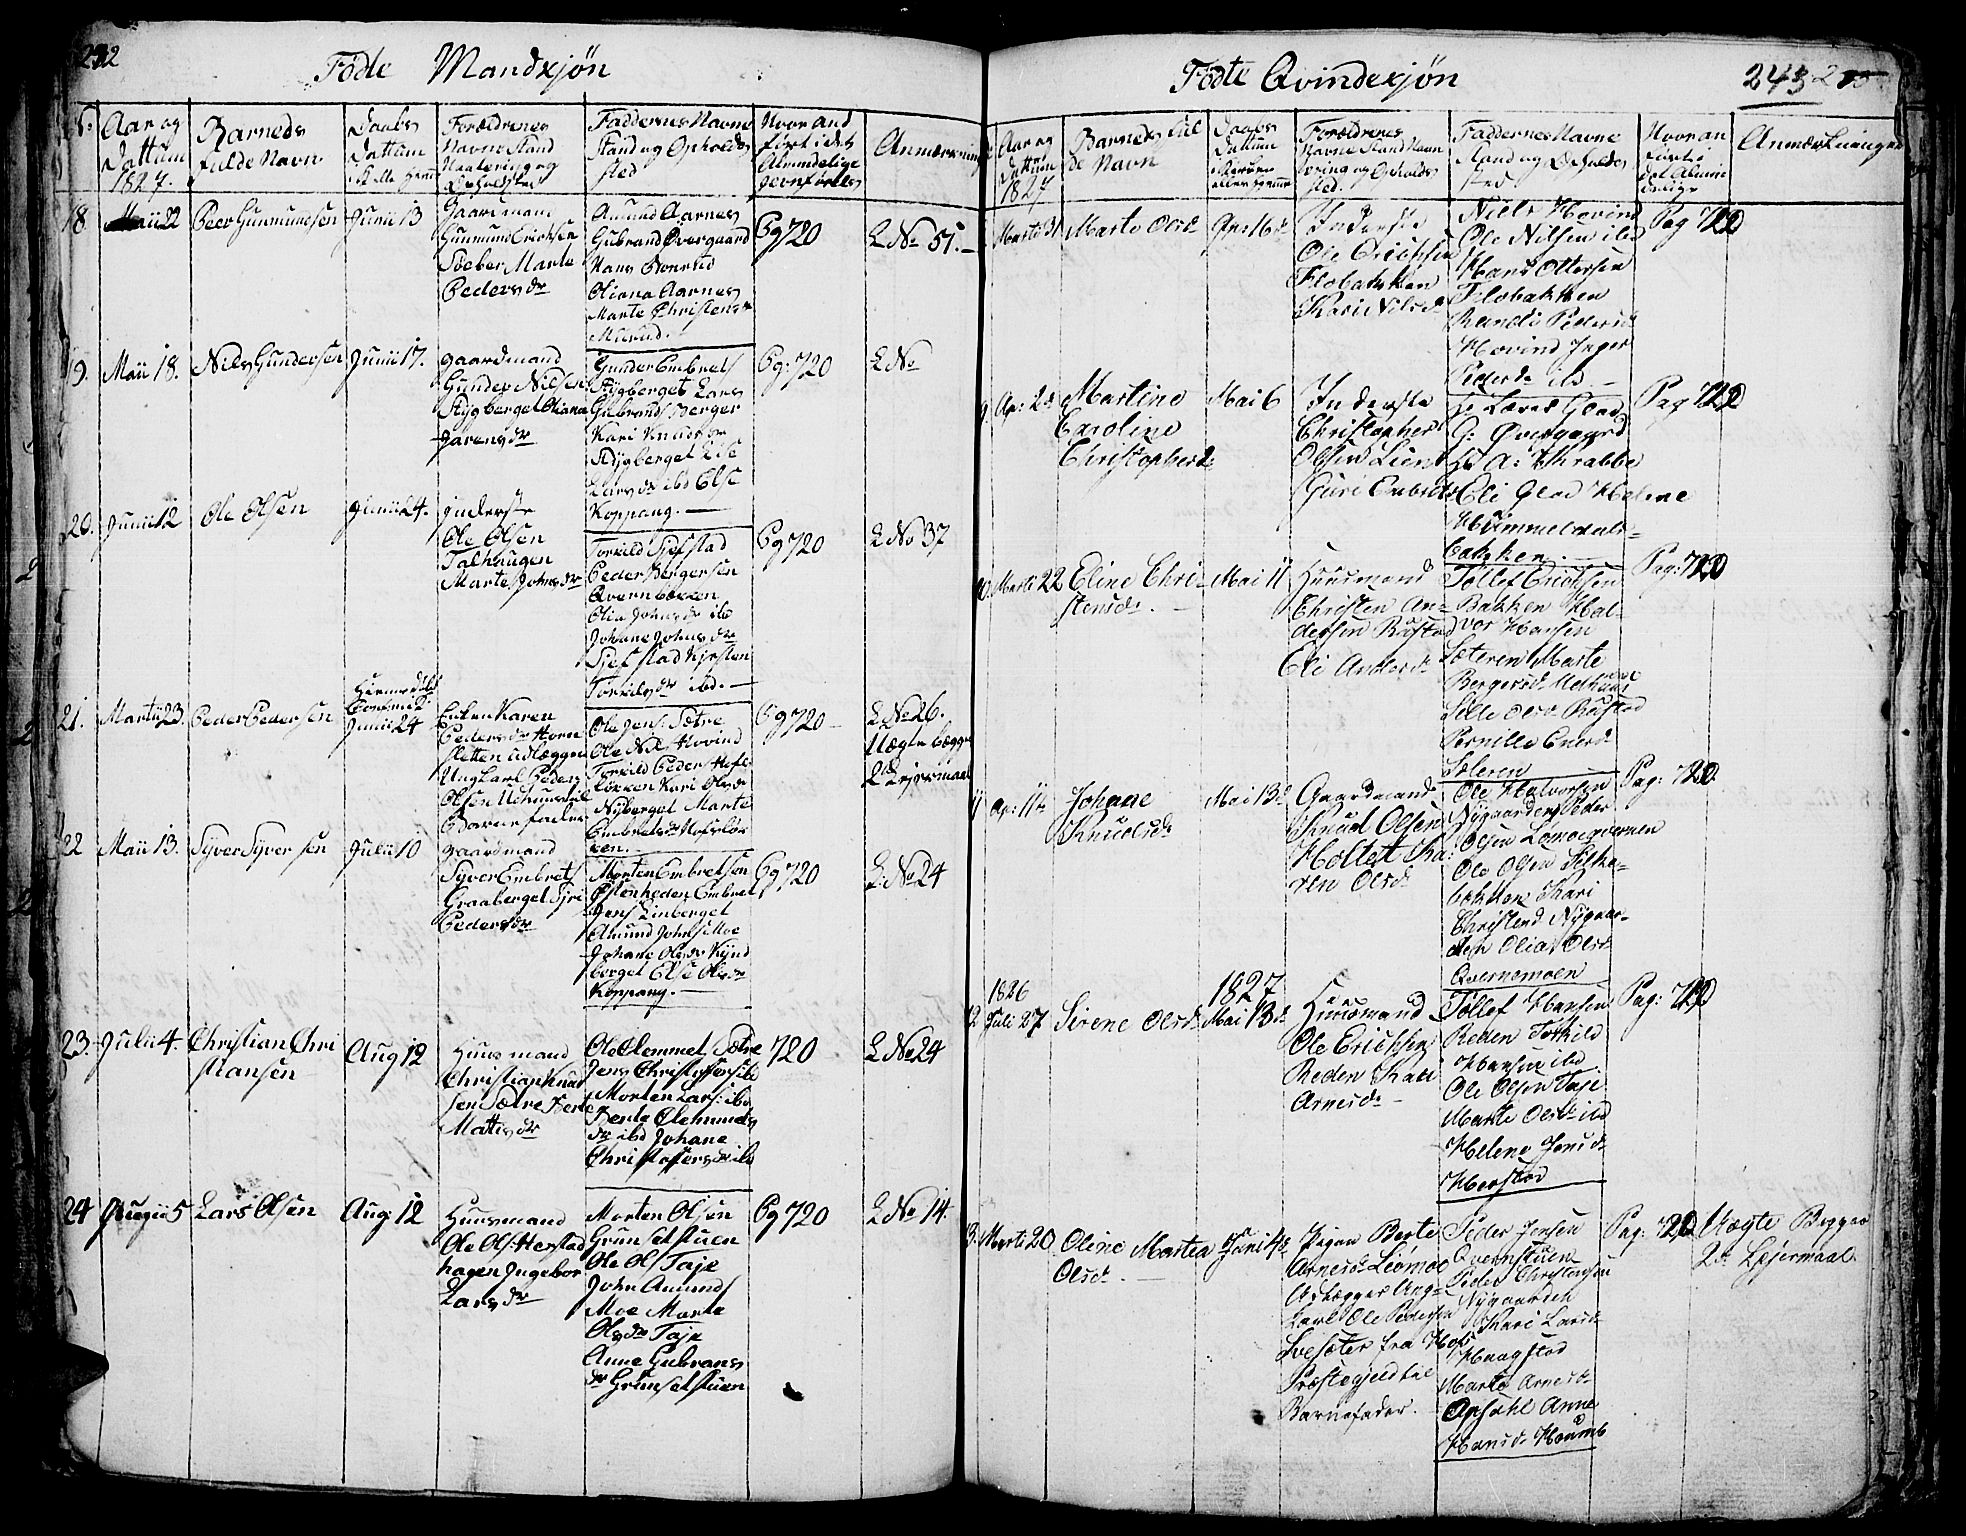 242
Födte Mandkjön
Aar og
Dattum
1827.
Barnets
fulde Navn
Daabs
Dattum
Forældrenes
Navne Stand
Haatering og
Opholdsted
Faddernes Navne
Stand og Opholds
sted
Hvor and
fört i det
Almindelige
Jevnförelses
18 Maii 22 Peer Gunmundsen Junii 13
Gaardmand
Gunmund Erichsen
Marte
Peders dr
Amund Aarnes
Gubrand Övergaard
Hans
Oliana Aarnes
Marte Christens dr
Pg 720
L No 51.
19. Maii 18. Nils Gundersen Junii 17.
gaardmand
Gunder Nilsen
Stygberget Oliana
Jørens dr
Gunder Embrets
Stygberget Lars
Gubrands Berger
Kari Knuds dr
Stygberget Else
Lars dr ibd Else
Koppang.
Pg: 720
L No
20. Junii 12 Ole Olsen Junii 24.
inderst
Ole Olsen
Talhaugen
Marte Johns dr
Torkild Sjefstad
Peder Bergersen
Qvernbækken
Olia Johns dr ibd
Johane Johns dr
Sjefstad Kjersten
Torkils dr ibd.
Pg 720
L No 37
21. Martii 23. Peder Pedersen
Hiemmedöbt
Junii 24
Enken Karen
Peders dr Horn
sletten udlægger
Ungkarl Peder
Olsen
Barnefader
Ole Jens: Sætre
Ole Nils Hovind
Torkild Peder
Kari Ols dr
Nyberget Marte
Embrets dr
ken.
Pg 720
L No 26.
Uægte begges
2d Leiermaal
22 Maii 13. Syver Syversen Julii 10
gaardmand
Syver Embrets
Graaberget Siri
Peders dr
Morten Embretsen
Östenheden Embret
Jens Linberget
Amund Johns Moe
Johane Ols dr Kynd
berget Else Ols dr
Koppang.
Pg 720
L: No 24
23. Julii 4. Christian Chri
stiansen
Aug 12
Huusmand
Christian Knud
sen Sætre Berte
Matis dr
Ole Clemmet: Sætre
Jens Christoffers ibd
Morten Lars: ibd
Bente Clemmets
dr ibd Johane
Christoffers dr ibd
720
L No 24
24 Lars Olsen Aug: 12
Huusmand
Ole Ols: Herstad
hagen Ingebor
Lars dr
Morten Olsen
Grünsetstuen
Ole Ols Taje
John Amunds
Moe Marte
Ols dr Taje
Anne Gubrans
dr Grünsetstuen
Pg 720
L No 14.
Födte Qvindekjön
243
Aar og
Dattum
1827
Barnets ful
de Navn
Daabs
Dattum
Forældrenes
Navne Stand Haan
tering og Opholds
sted.
Faddernes Navne
Stand og Opholds
sted
Hvor an
fört i
det Almin
delige
Anmærkninger
Martii 31 Marte Olsd. Apr: 16d.
Inderste
Ole Erichsen
Flobakken
Kari Nilsd.
Niels Hovind
Ole Nilsen ibd
Hans Ottersen
Flobakken
Randi Pedersd.
Hovind Inger
Pedersd. ibd.
Pag 720
9 Ap: 2d Martine
Caroline
Christophersd.
Mai 6
Inderste
Christopher
Olsen Lien
Guri Embretsd.
Hr Lærer Glad
G: Övergaard
Hr A: Krabbe
Eli Glad Helene
Himmeldals-
bakken.
Pag 720
10. Martii 22 Eline Chri-
stensd.
Mai 11
Huusmand
Christen An-
dersen Rustad
Eli Andersd.
Tollef Erichsen
Bakken Hal-
vor Hansen
Sæteren Marte
Bergersd. Melhuus
Sille Olsd. Rustad
Pernille Enersd.
Sæteren
Pag: 720
11 Ap: 11te Johane
Knudsd.
Mai 13d.
Gaardmand
Knud Olsen
Holtet Ka-
ren Olsd.
Ole Halvorsen
Nygaarden Peder
Olsen Lömoqvernen
Ole Olsen Silke-
bakken Kari
Christensd. Nygaar-
den Olia Olsd.
Qvernmoen
Pag: 720
1826
12 Juli 27 Sirene Olsd.
1827
Mai 13d.
Huusmand
Ole Erichsen
Reden Kari
Arnesd.
Tollef Hansen
Reden Torkild
Hansen ibd.
Ole Olsen Taje
Marte Olsd. ibd
Helene Jensd.
Herstad
Pag: 720
13. Martii 20 Oline Martea
Olsd.
Juni 4de
Pigen Berte
Arnesd. Löomoe
Udlægger Ung-
karl Ole Pedersen
Svesæter fra Hofs
Præstegjeld til
Barnefader.
Peder Jensen
Qvernstuen
Peder Christensen
Nygaarden
Kari Larsd.
Haagstad
Marte Arnesd.
Opsahl Anne
Hansd. Houmb
Pag: 720
Uægte Begges
2d: Lejermaal